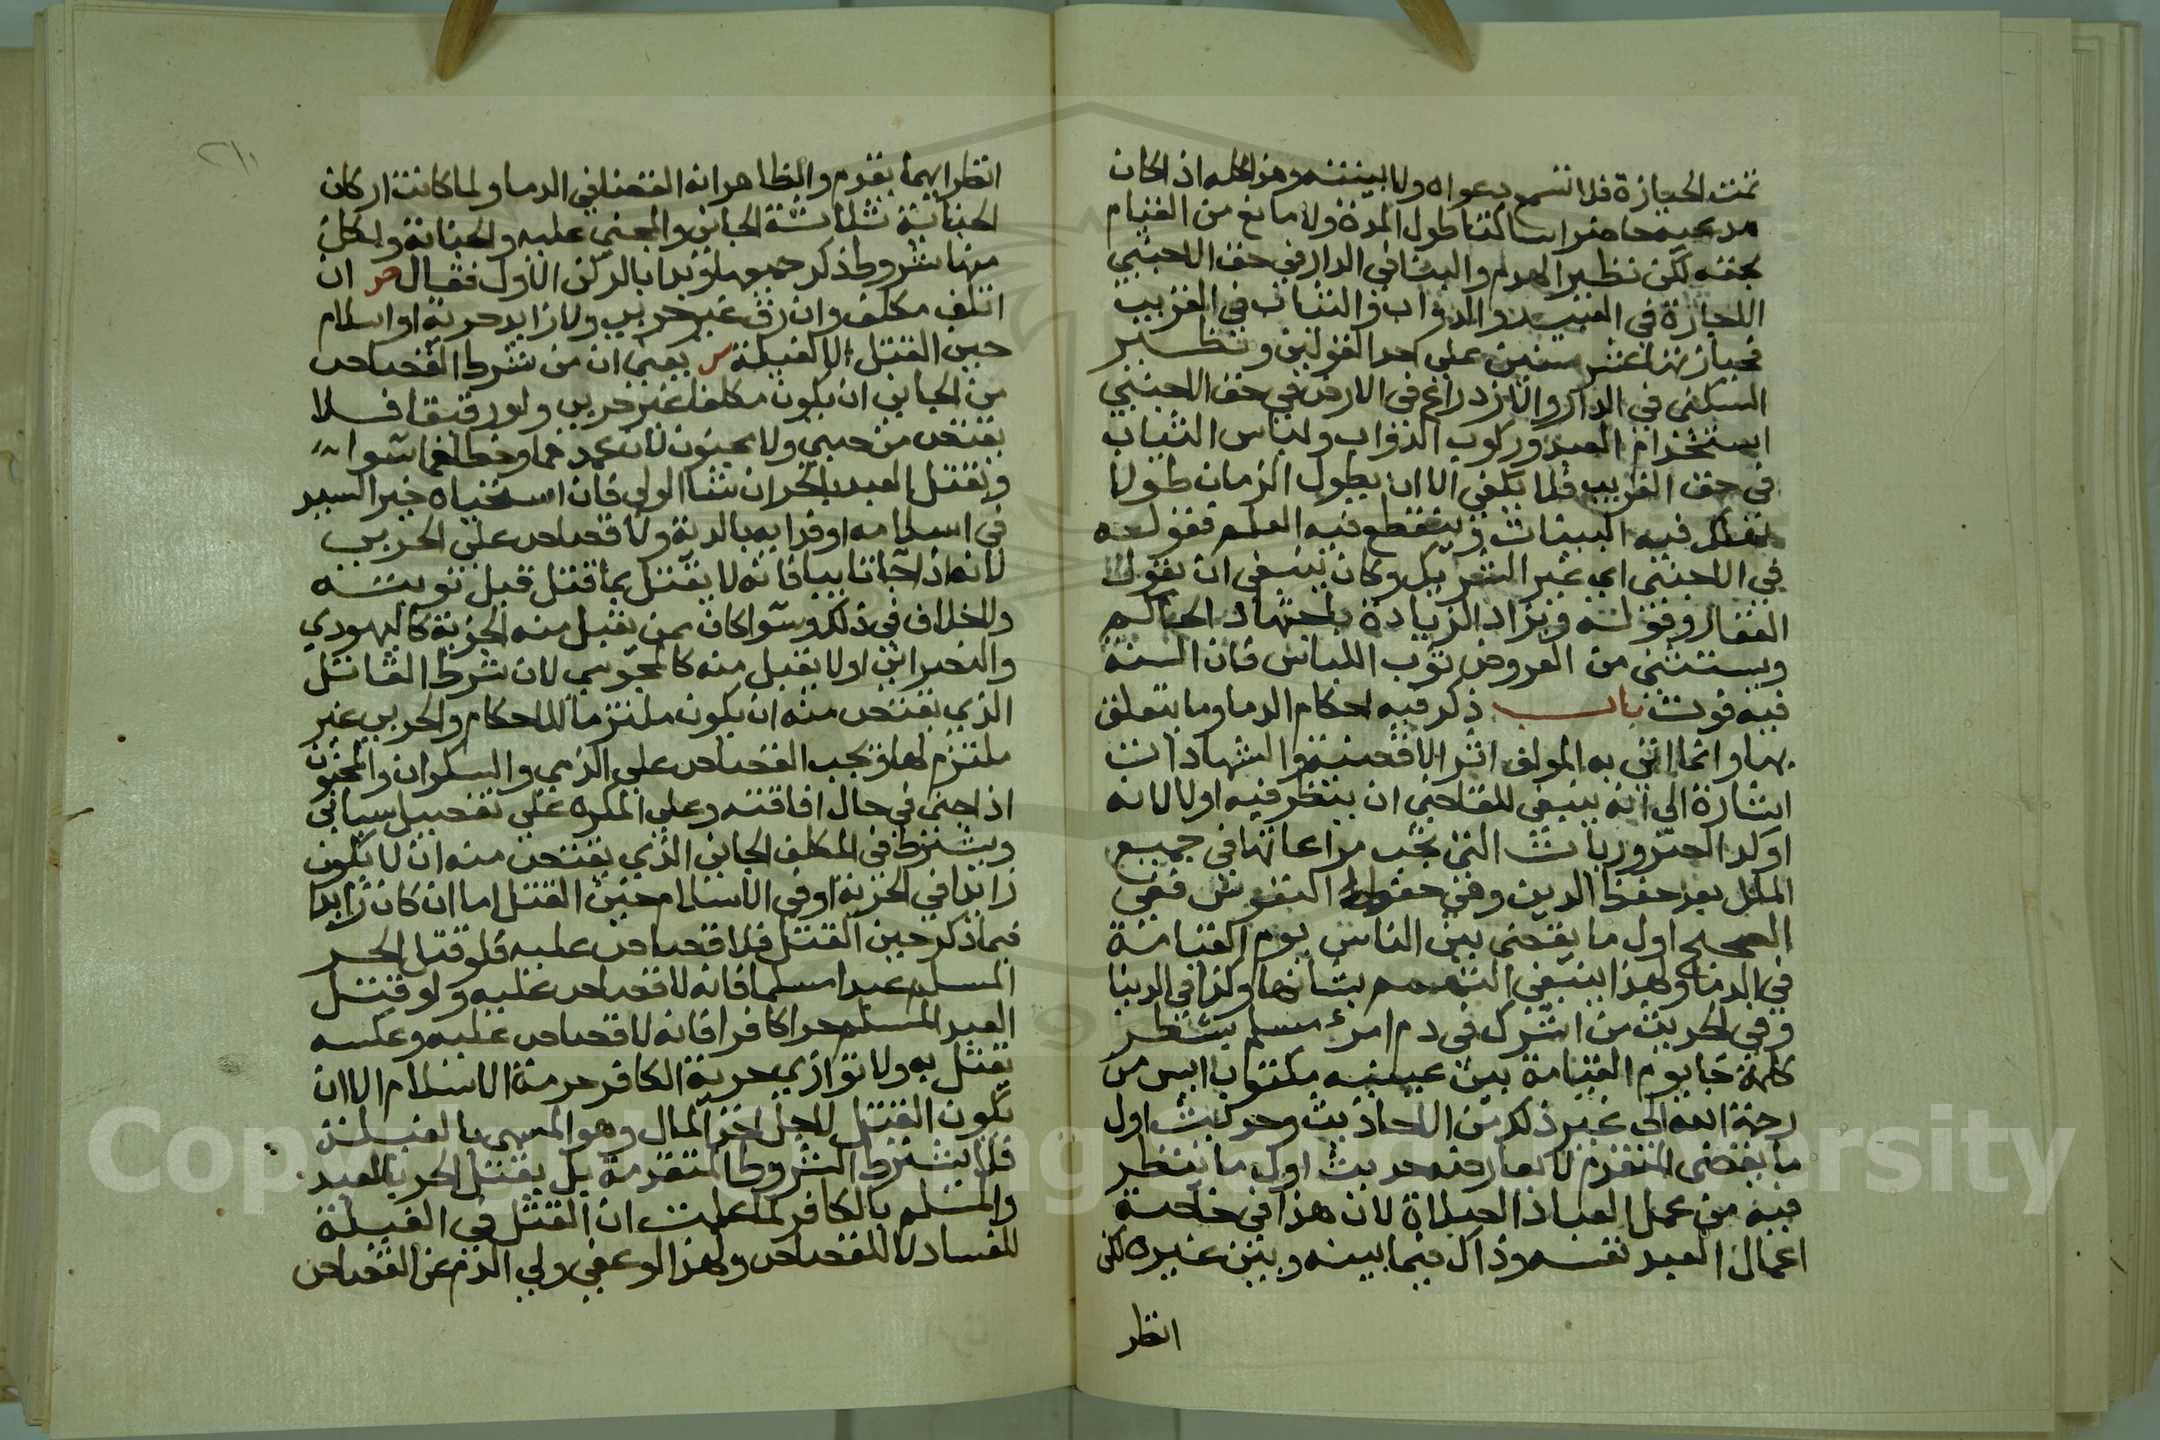 تمت الحيازة فلا تسمع دعواه ولا بينته وهذا كله اذا كان
مدعيه حاضرا ساكتا طول المدة ولا مانع من القيام
بحقه لكن نظير الهدم والبنا في الدار في حق الاجنبي
الاجارة في العبيد والدواب والثياب في القريب
فحيازتها عشر سنين علي احد القولين ونظير
السكني في الدار والازدراع في الارض في حق الاجنبي
استخدام العبد وركوب الدواب ولباس الثياب
في حق القريب فلا يكفي الا ان يطول الزمان طولا
تهلك فيه البينات وينقطع فيه العلم فقوله
في الاجنبي اي غير الشريك وكان ينبغي ان يقول
العقار وقولنه ويزاد الزيادة باجتهاد الحاكم
ويستثني من العروض ثوب اللباس فان السنة
فيه فوت باب ذكر فيه احكام الدما وما يتعلق
بها وانما اتي به المولف اثر الاقضية والشهادات
اشارة الي انه ينبغي للقاضي ان ينظر فيه اولا لانه
اوكد الضروريات التي تجب مراعاتها في جميع
الملل بعد حفظ الدين وهي حفظ النفوس ففي
الصحيح اول ما يقضي بين الناس يوم القيامة
في الدما ولهذا ينبغي التهمم بشانها وكذا في الدنيا
وفي الحديث من اشرك في دم امرئ مسلم بشطر
كلمة جا يوم القيامة بين عينيه مكتوب ايس من
رحمة الله الي غير ذلك من الاحاديث وحديث اول
ما يقضي المتقدم لا يعارضه حديث اول ما ينظر
فيه من عمل العباد الصلاة لان هذا في خاصة
اعمال العبد نفسه وذاك فيما بينه وبين غيره لكن
انظر
٢١٠
انظر ايهما يقدم والظاهر انه القضا في الدما ولما كانت اركان
الجناية ثلاثة الجاني والمجني عليه والجناية ولكل
منها شروط ذكر جميعها وبدا بالركن الاول فقال ص ان
اتلف مكلف وان رق غير حربي ولا زايد حرية او اسلام
حين القتل الا لغيلة ش يعني ان من شرط القصاص
من الجاني ان يكون مكلفا غير حربي ولو رقيقا فلا
يقتص من صبي ولا مجنون لان عمدهما وخطاهما سوا
ويقتل العبد بالحر ان شا الولي فان استحياه خير السيد
في اسلامه او فدايه بالدية ولا قصاص علي الحربي
لانه اذا جا تايبا فانه لا يقتل بما قتل قبل توبته
ولا خلاف في ذلك وسوا كان ممن يقبل منه الجزية كاليهودي
والنصراني او لا يقبل منه كالمجوسي لان شرط القاتل
الذي يقتص منه ان يكون ملتزما للاحكام والحربي غير
ملتزم لها ويجب القصاص علي الذمي والسكران والمجنون
اذا جني في حال افاقته وعلي المكره علي تفصيل سياتي
ويشترط في المكلف الجاني الذي يقتص منه ان لا يكون
زايدا في الحرية او في الاسلام حين القتل اما ان كان زايدا
فيما ذكر حين القتل فلا قصاص عليه فلو قتل الحر
المسلم عبدا مسلما فانه لا قصاص عليه ولو قتل
العبد المسلم حرا كافرا فانه لا قصاص عليه وعكسه
يقتل به ولا توازي حرية الكافر حرمة الاسلام الا ان
يكون القتل لاجل اخذ المال وهو المسمي بالغيلة
فلا يشترط الشروط المتقدمة بل يقتل الحر بالعبد
والمسلم بالكافر لما علمت ان القتل في الغيلة
للفساد لا للقصاص ولهذا لو عفي ولي الدم عن القصاص